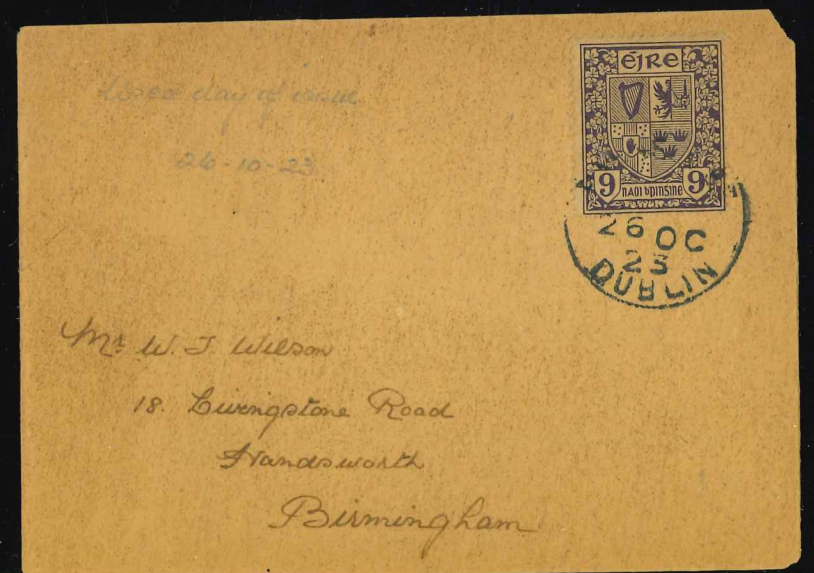 Used day of issue
26-10-23
éire
9 naoi bpinsine 9
26 OC
23
DUBLIN
Mr W. J. Wilson
18. Livingstone Road
Handsworth
Birmingham